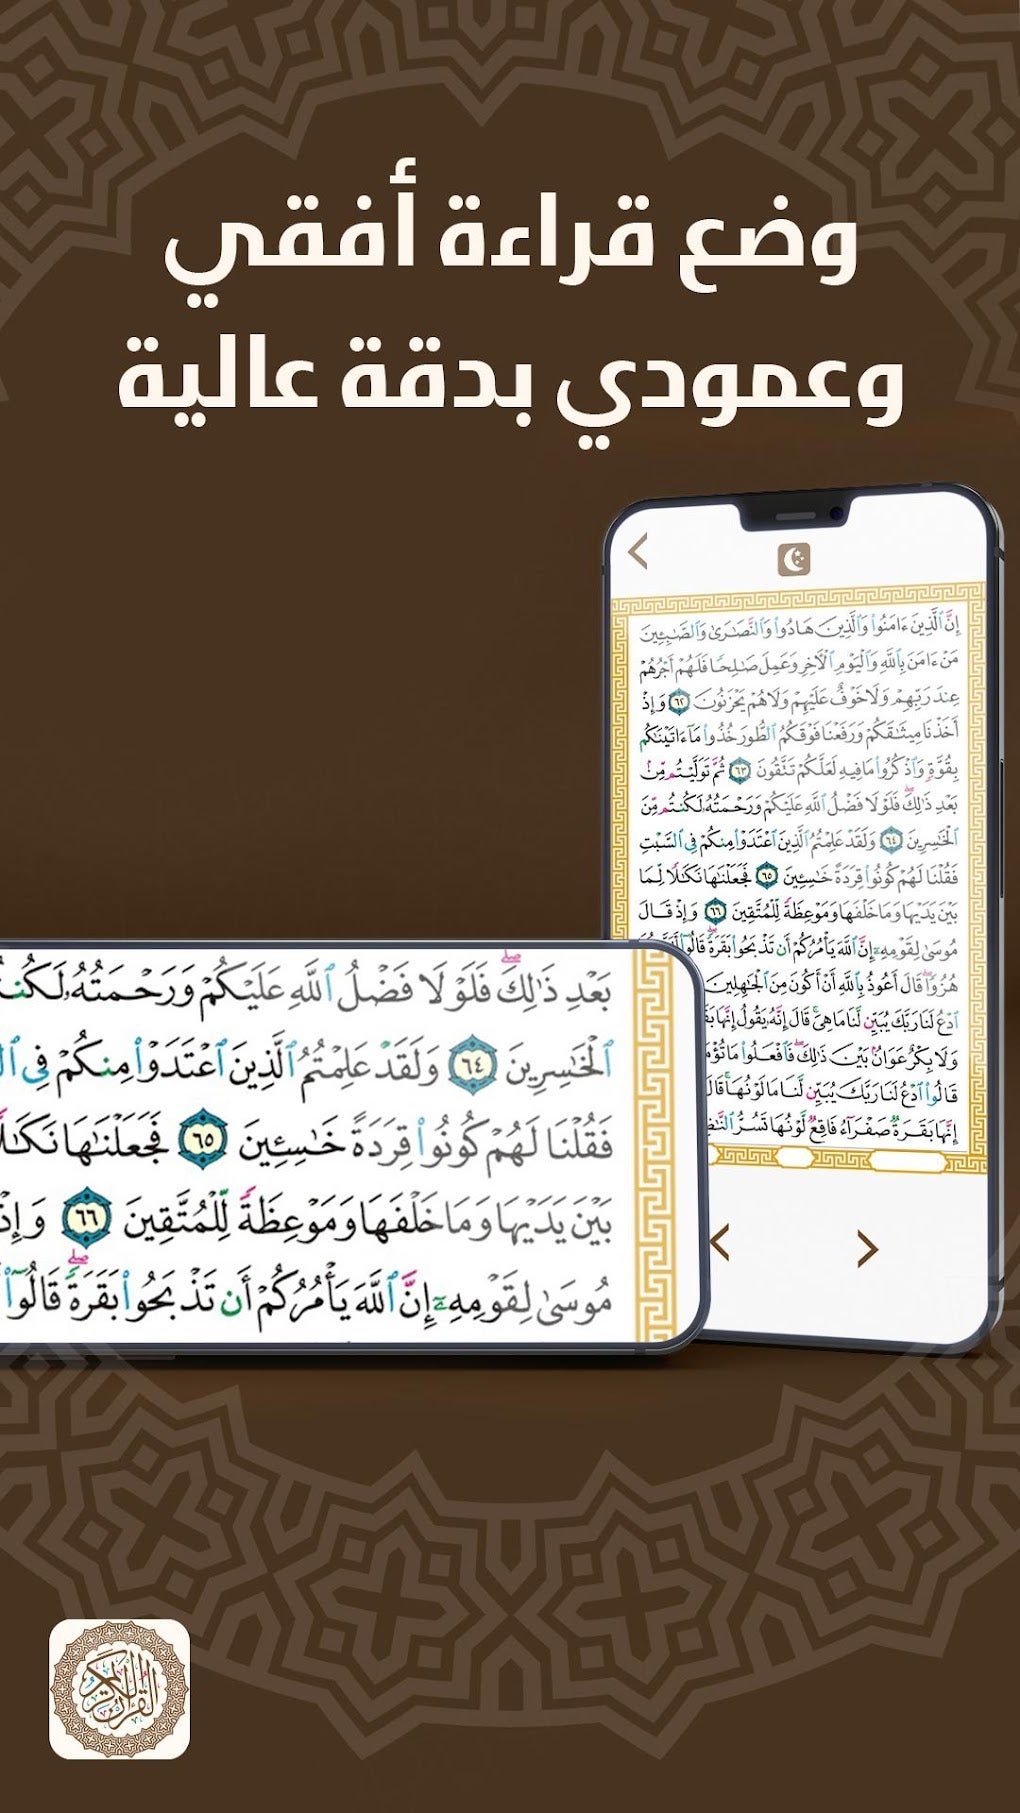 وضع قراءة أفقي
وعمودي بدقة عالية
إِنَّ ٱلَّذِينَ ءَامَنُوا۟ وَٱلَّذِينَ هَادُوا۟ وَٱلنَّصَـٰرَىٰ وَٱلصَّـٰبِـِٔينَ
مَنْ ءَامَنَ بِٱللَّهِ وَٱلْيَوْمِ ٱلْـَٔاخِرِ وَعَمِلَ صَـٰلِحًا فَلَهُمْ أَجْرُهُمْ
عِندَ رَبِّهِمْ وَلَا خَوْفٌ عَلَيْهِمْ وَلَا هُمْ يَحْزَنُونَ ٦٢ وَإِذْ
أَخَذْنَا مِيثَـٰقَكُمْ وَرَفَعْنَا فَوْقَكُمُ ٱلطُّورَ خُذُوا۟ مَآ ءَاتَيْنَـٰكُم
بِقُوَّةٍ وَٱذْكُرُوا۟ مَا فِيهِ لَعَلَّكُمْ تَتَّقُونَ ٦٣ ثُمَّ تَوَلَّيْتُم مِّنۢ
بَعْدِ ذَٰلِكَ ۖ فَلَوْلَا فَضْلُ ٱللَّهِ عَلَيْكُمْ وَرَحْمَتُهُۥ لَكُنتُم مِّنَ
ٱلْخَـٰسِرِينَ ٦٤ وَلَقَدْ عَلِمْتُمُ ٱلَّذِينَ ٱعْتَدَوْا۟ مِنكُمْ فِى ٱلسَّبْتِ
فَقُلْنَا لَهُمْ كُونُوا۟ قِرَدَةً خَـٰسِـِٔينَ ٦٥ فَجَعَلْنَـٰهَا نَكَـٰلًا لِّمَا
بَيْنَ يَدَيْهَا وَمَا خَلْفَهَا وَمَوْعِظَةً لِّلْمُتَّقِينَ ٦٦ وَإِذْ قَالَ
مُوسَىٰ لِقَوْمِهِۦٓ إِنَّ ٱللَّهَ يَأْمُرُكُمْ أَن تَذْبَحُوا۟ بَقَرَةً ۖ قَالُوٓا۟
هُزُوًا ۖ قَالَ أَعُوذُ بِٱللَّهِ أَنْ أَكُونَ مِنَ ٱلْجَـٰهِلِينَ
ٱدْعُ لَنَا رَبَّكَ يُبَيِّن لَّنَا مَا هِىَ ۚ قَالَ إِنَّهُۥ يَقُولُ إِنَّهَا
وَلَا بِكْرٌ عَوَانٌۢ بَيْنَ ذَٰلِكَ ۖ فَٱفْعَلُوا۟ مَا
قَالُوا۟ ٱدْعُ لَنَا رَبَّكَ يُبَيِّن لَّنَا مَا لَوْنُهَا ۚ قَالَ
إِنَّهَا بَقَرَةٌ صَفْرَآءُ فَاقِعٌ لَّوْنُهَا تَسُرُّ
بَعْدِ ذَٰلِكَ ۖ فَلَوْلَا فَضْلُ ٱللَّهِ عَلَيْكُمْ وَرَحْمَتُهُۥ
ٱلْخَـٰسِرِينَ ٦٤ وَلَقَدْ عَلِمْتُمُ ٱلَّذِينَ ٱعْتَدَوْا۟ مِنكُمْ فِى
فَقُلْنَا لَهُمْ كُونُوا۟ قِرَدَةً خَـٰسِـِٔينَ ٦٥ فَجَعَلْنَـٰهَا
بَيْنَ يَدَيْهَا وَمَا خَلْفَهَا وَمَوْعِظَةً لِّلْمُتَّقِينَ ٦٦ وَإِذْ
مُوسَىٰ لِقَوْمِهِۦٓ إِنَّ ٱللَّهَ يَأْمُرُكُمْ أَن تَذْبَحُوا۟ بَقَرَةً ۖ قَالُوٓا۟
القرآن الكريم